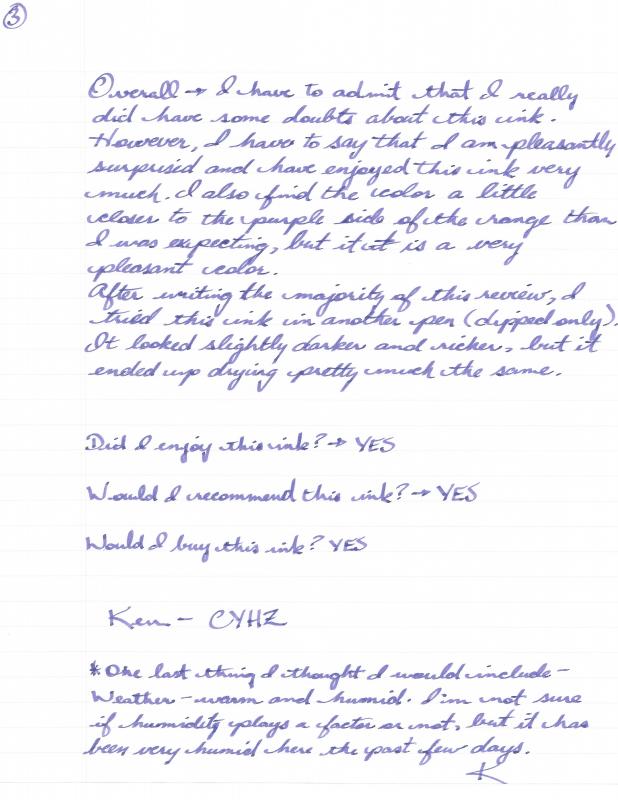 3
Overall → I have to admit that I really
did have some doubts about this ink.
However, I have to say that I am pleasantly
surprised and have enjoyed this ink very
much. I also find the color a little
closer to the purple side of the range than
I was expecting, but it is a very
pleasant color.
After writing the majority of this review, I
tried this ink in another pen (dipped only).
It looked slightly darker and richer, but it
ended up drying pretty much the same.
Did I enjoy this ink? → YES
Would I recommend this ink? → YES
Would I buy this ink? YES
Ken - CYHZ
*One last thing I thought I would include -
Weather - warm and humid. I'm not sure
if humidity plays a factor or not, but it has
been very humid here the past few days.
K